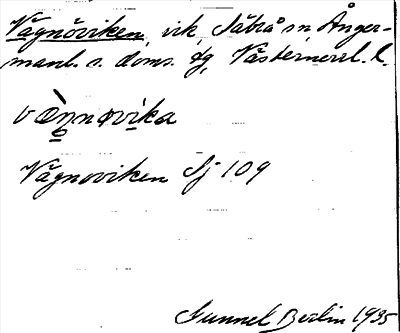 Vägnöviken, vik, Säbrå sn, Ånger-
manl. s. doms. dg, Västernorrl. l.
væ̀nnøvika
Vägnoviken Sj 109
Gunnel Berlin 1935